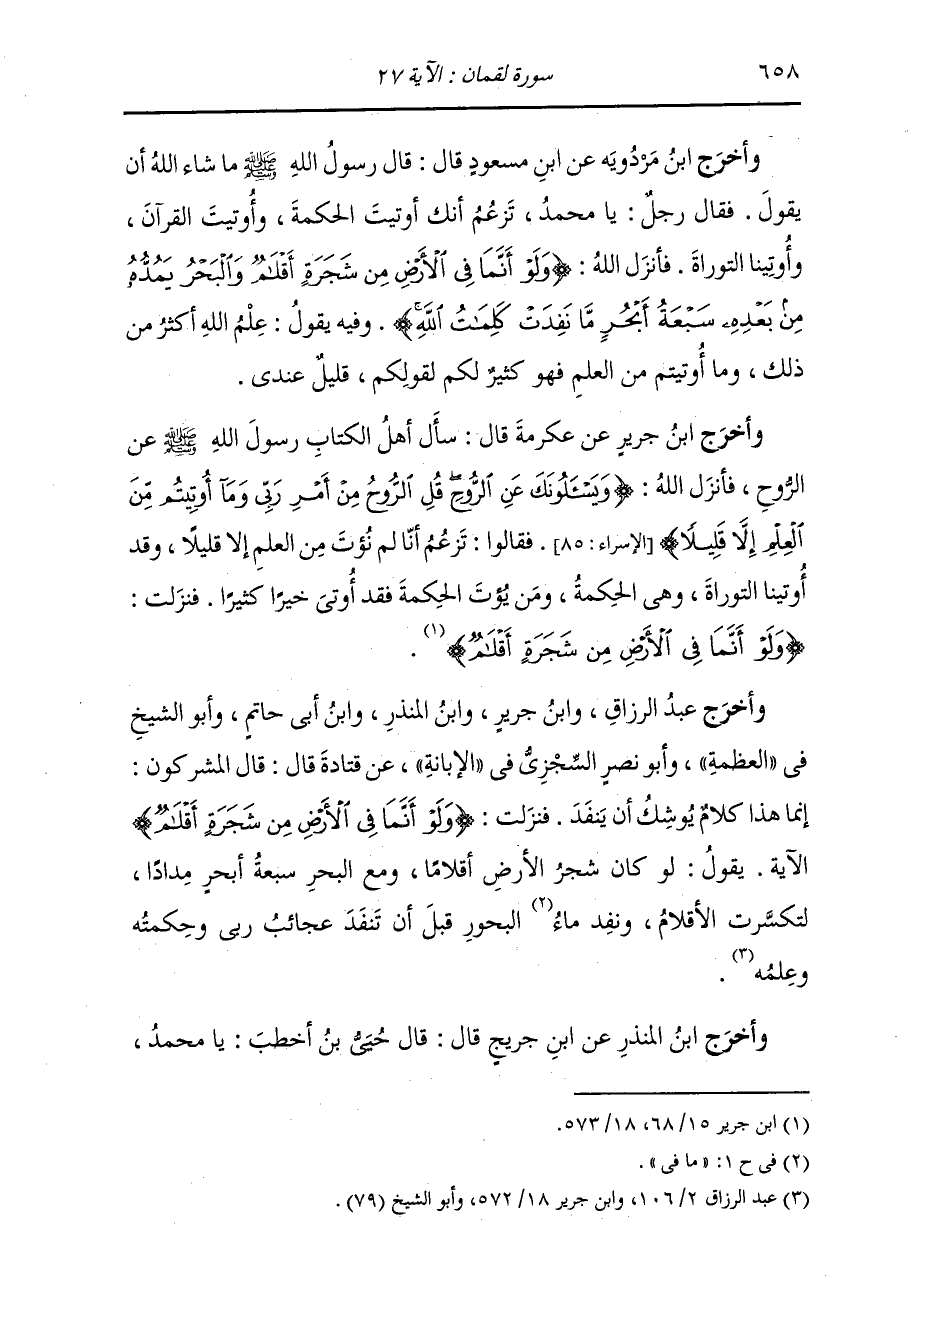 ٦٥٨ سورة لقمان : الآية ٢٧
وأخرَج ابنُ مَرْدُويَه عن ابنِ مسعودٍ قال : قال رسولُ اللهِ ﷺ ما شاء اللهُ أن
يقولَ . فقال رجلٌ : يا محمدُ ، تَزعُمُ أنك أوتيتَ الحكمةَ ، وأُوتيتَ القرآنَ ،
وأُوتِينا التوراةَ . فأنزَل اللهُ : ﴿وَلَوْ أَنَّمَا فِى ٱلْأَرْضِ مِن شَجَرَةٍ أَقْلَٰمٌ وَٱلْبَحْرُ يَمُدُّهُۥ
مِنۢ بَعْدِهِۦ سَبْعَةُ أَبْحُرٍ مَّا نَفِدَتْ كَلِمَٰتُ ٱللَّهِۚ﴾ . وفيه يقولُ : عِلْمُ اللهِ أكثرُ من
ذلك ، وما أُوتيتم من العلمِ فهو كثيرٌ لكم لقولِكم ، قليلٌ عندى .
وأخرَج ابنُ جريرٍ عن عكرمةَ قال : سأَل أهلُ الكتابِ رسولَ اللهِ ﷺ عن
الرُّوحِ ، فأنزَل اللهُ : ﴿وَيَسْـَٔلُونَكَ عَنِ ٱلرُّوحِۖ قُلِ ٱلرُّوحُ مِنْ أَمْرِ رَبِّى وَمَآ أُوتِيتُم مِّنَ
ٱلْعِلْمِ إِلَّا قَلِيلًا﴾ [الإسراء : ٨٥] . فقالوا : تَزعُمُ أنّا لم نُؤتَ مِن العلمِ إلا قليلًا ، وقد
أُوتينا التوراةَ ، وهى الحِكمةُ ، ومَن يُؤتَ الحِكمةَ فقد أُوتىَ خيرًا كثيرًا . فنزَلت :
﴿وَلَوْ أَنَّمَا فِى ٱلْأَرْضِ مِن شَجَرَةٍ أَقْلَٰمٌ﴾ (١) .
وأخرَج عبدُ الرزاقِ ، وابنُ جريرٍ ، وابنُ المنذرِ ، وابنُ أبى حاتمٍ ، وأبو الشيخِ
فى «العظمةِ» ، وأبو نصرٍ السِّجْزِىُّ فى «الإبانةِ» ، عن قتادةَ قال : قال المشركون :
إنما هذا كلامٌ يُوشِكُ أن يَنفَدَ . فنزَلت : ﴿وَلَوْ أَنَّمَا فِى ٱلْأَرْضِ مِن شَجَرَةٍ أَقْلَٰمٌ﴾
الآية . يقولُ : لو كان شجرُ الأرضِ أقلامًا ، ومع البحرِ سبعةُ أبحرٍ مِدادًا ،
لتكسَّرت الأقلامُ ، ونفِد ماءُ (٢) البحورِ قبلَ أن تَنفَدَ عجائبُ ربى وحِكمتُه
وعِلمُه (٣) .
وأخرَج ابنُ المنذرِ عن ابنِ جريجٍ قال : قال حُيَىُّ بنُ أخطبَ : يا محمدُ ،
(١) ابن جرير ١٥/ ٦٨، ١٨/ ٥٧٣.
(٢) فى ح ١: «ما فى» .
(٣) عبد الرزاق ٢/ ١٠٦، وابن جرير ١٨/ ٥٧٢، وأبو الشيخ (٧٩) .